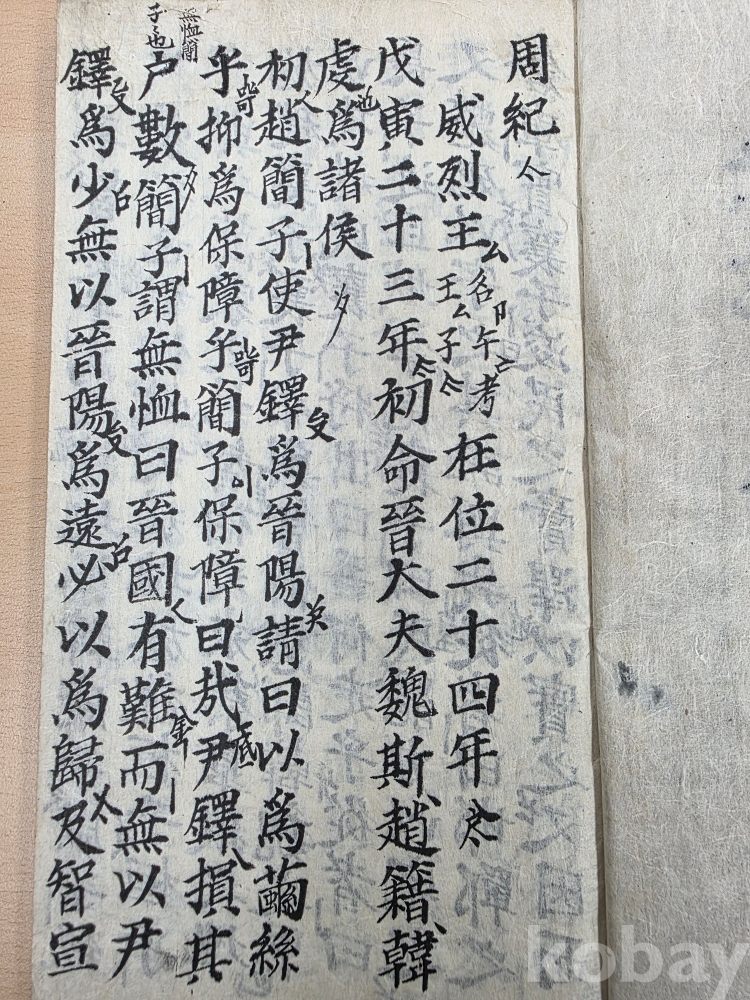 周紀
威烈王名午考王子在位二十四年
戊寅二十三年初命晉大夫魏斯趙籍韓
虔爲諸侯
初趙簡子使尹鐸爲晉陽請曰以爲繭絲
乎抑爲保障乎簡子保障曰哉尹鐸損其
無恤簡
子也
户數簡子謂無恤曰晉國有難而無以尹
鐸爲少無以晉陽爲遠必以爲歸及智宣
kobay